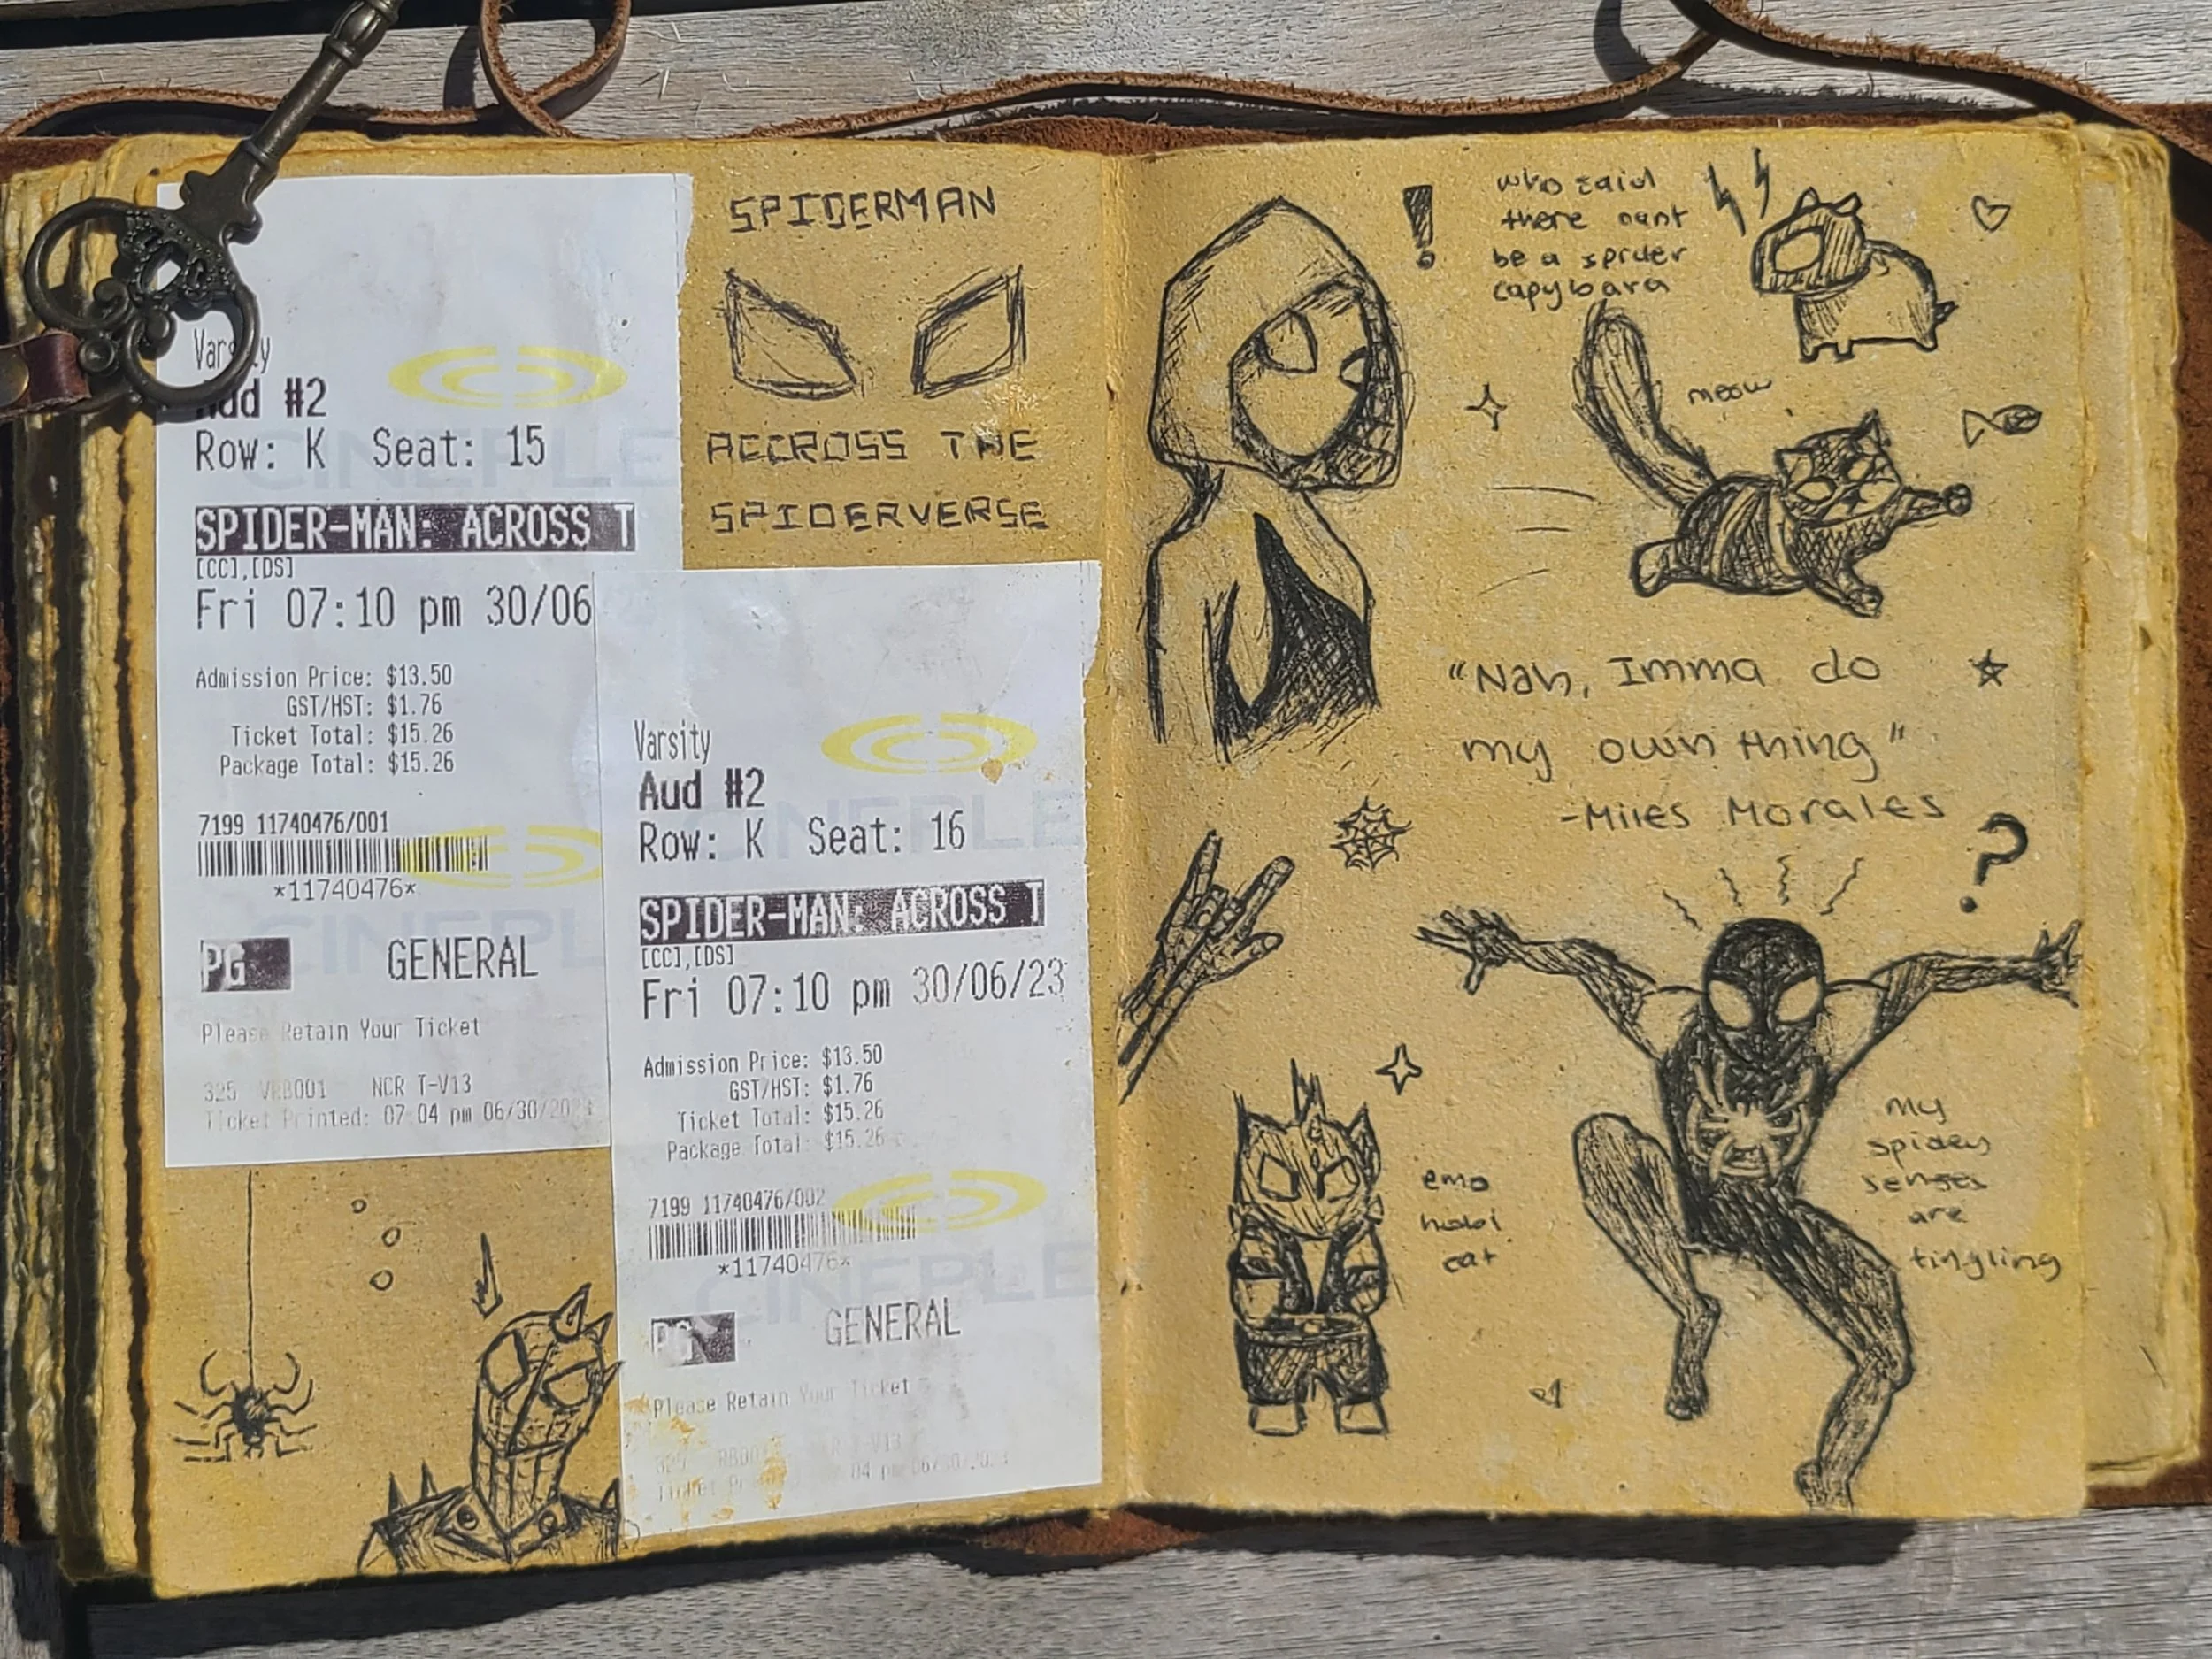 Varsity
Aud #2
Row: K Seat: 15
SPIDER-MAN: ACROSS T
[CC],[DS]
Fri 07:10 pm 30/06
Admission Price: $13.50
GST/HST: $1.76
Ticket Total: $15.26
Package Total: $15.26
7199 11740476/001
*11740476*
PG GENERAL
Please Retain Your Ticket
325 NCR T-V13
Ticket Printed: 07:04 pm 06/30/2023
SPIDERMAN
ACCROSS THE
SPIDERVERSE
Varsity
Aud #2
Row: K Seat: 16
SPIDER-MAN: ACROSS T
[CC],[DS]
Fri 07:10 pm 30/06/23
Admission Price: $13.50
GST/HST: $1.76
Ticket Total: $15.26
Package Total: $15.26
7199 11740476/002
*11740476*
PG GENERAL
Please Retain Your Ticket
CINEPLE
CINEPL
CINEPLE
CINEPLE
!
who said
there cant
be a spider
capybara
meow
"Nah, Imma do
my own thing"
-Miles Morales
?
emo
hobi
cat
my
spidey
senses
are
tingling